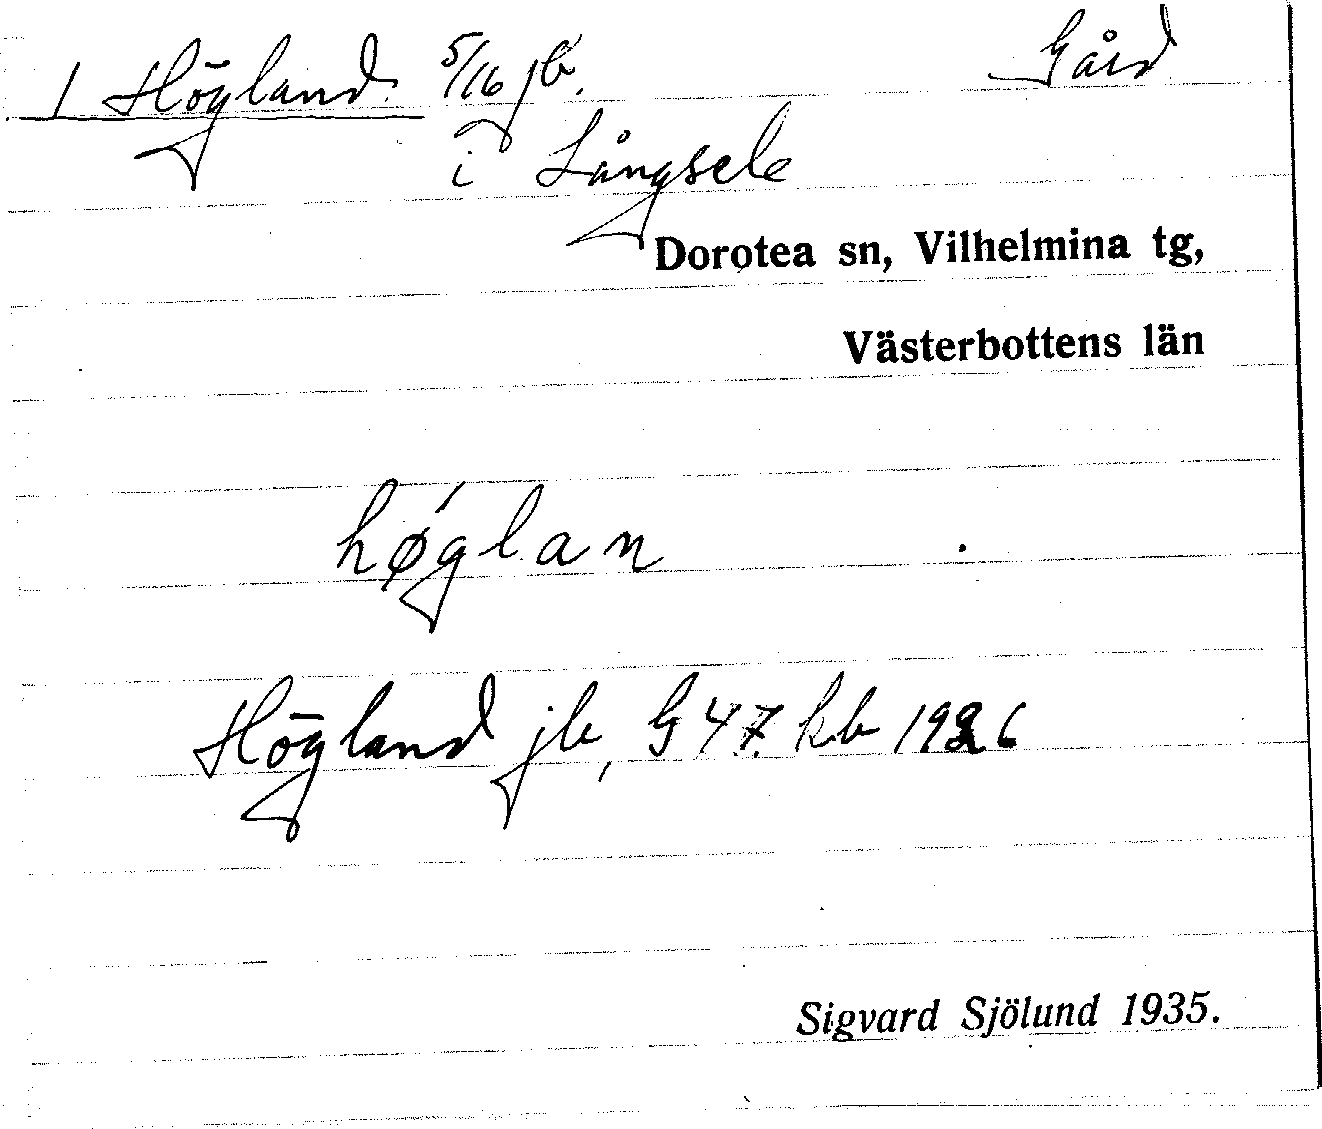 1 Högland 5/16 jb. Gård
i Långsele
Dorotea sn, Vilhelmina tg,
Västerbottens län
hǿglan
Högland jb, G 47. kb 1926
Sigvard Sjölund 1935.